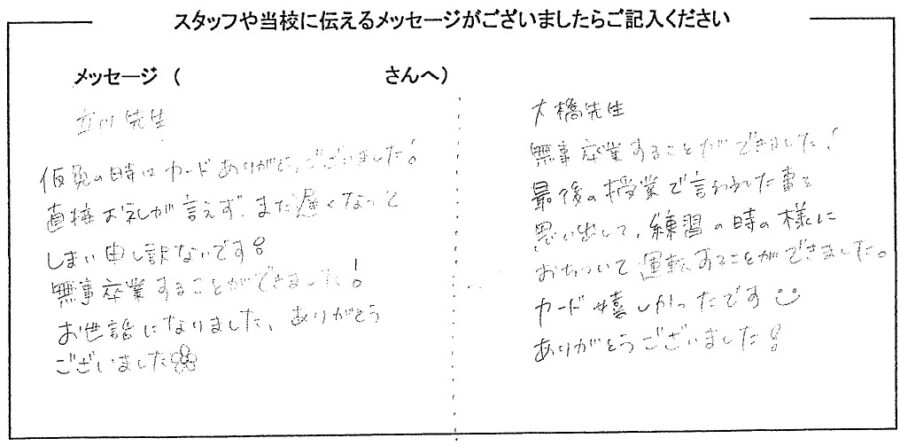 スタッフや当校に伝えるメッセージがございましたらご記入ください
メッセージ ( さんへ)
立川先生
仮免の時はカードありがとうございました!
直接お礼が言えず、また遅くなって
しまい申し訳ないです!
無事卒業することができました!
お世話になりました、ありがとう
ございました
大橋先生
無事卒業することができました!
最後の授業で言われた事を
思い出して、練習の時の様に
おちついて運転することができました。
カード嬉しかったです
ありがとうございました!